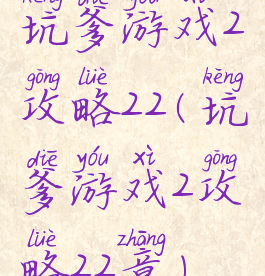 kēng diē yóu xì
坑爹游戏2
gōng lüè kēng
攻略22(坑
diē yóu xì gōng
爹游戏2攻
lüè zhāng
略22章)